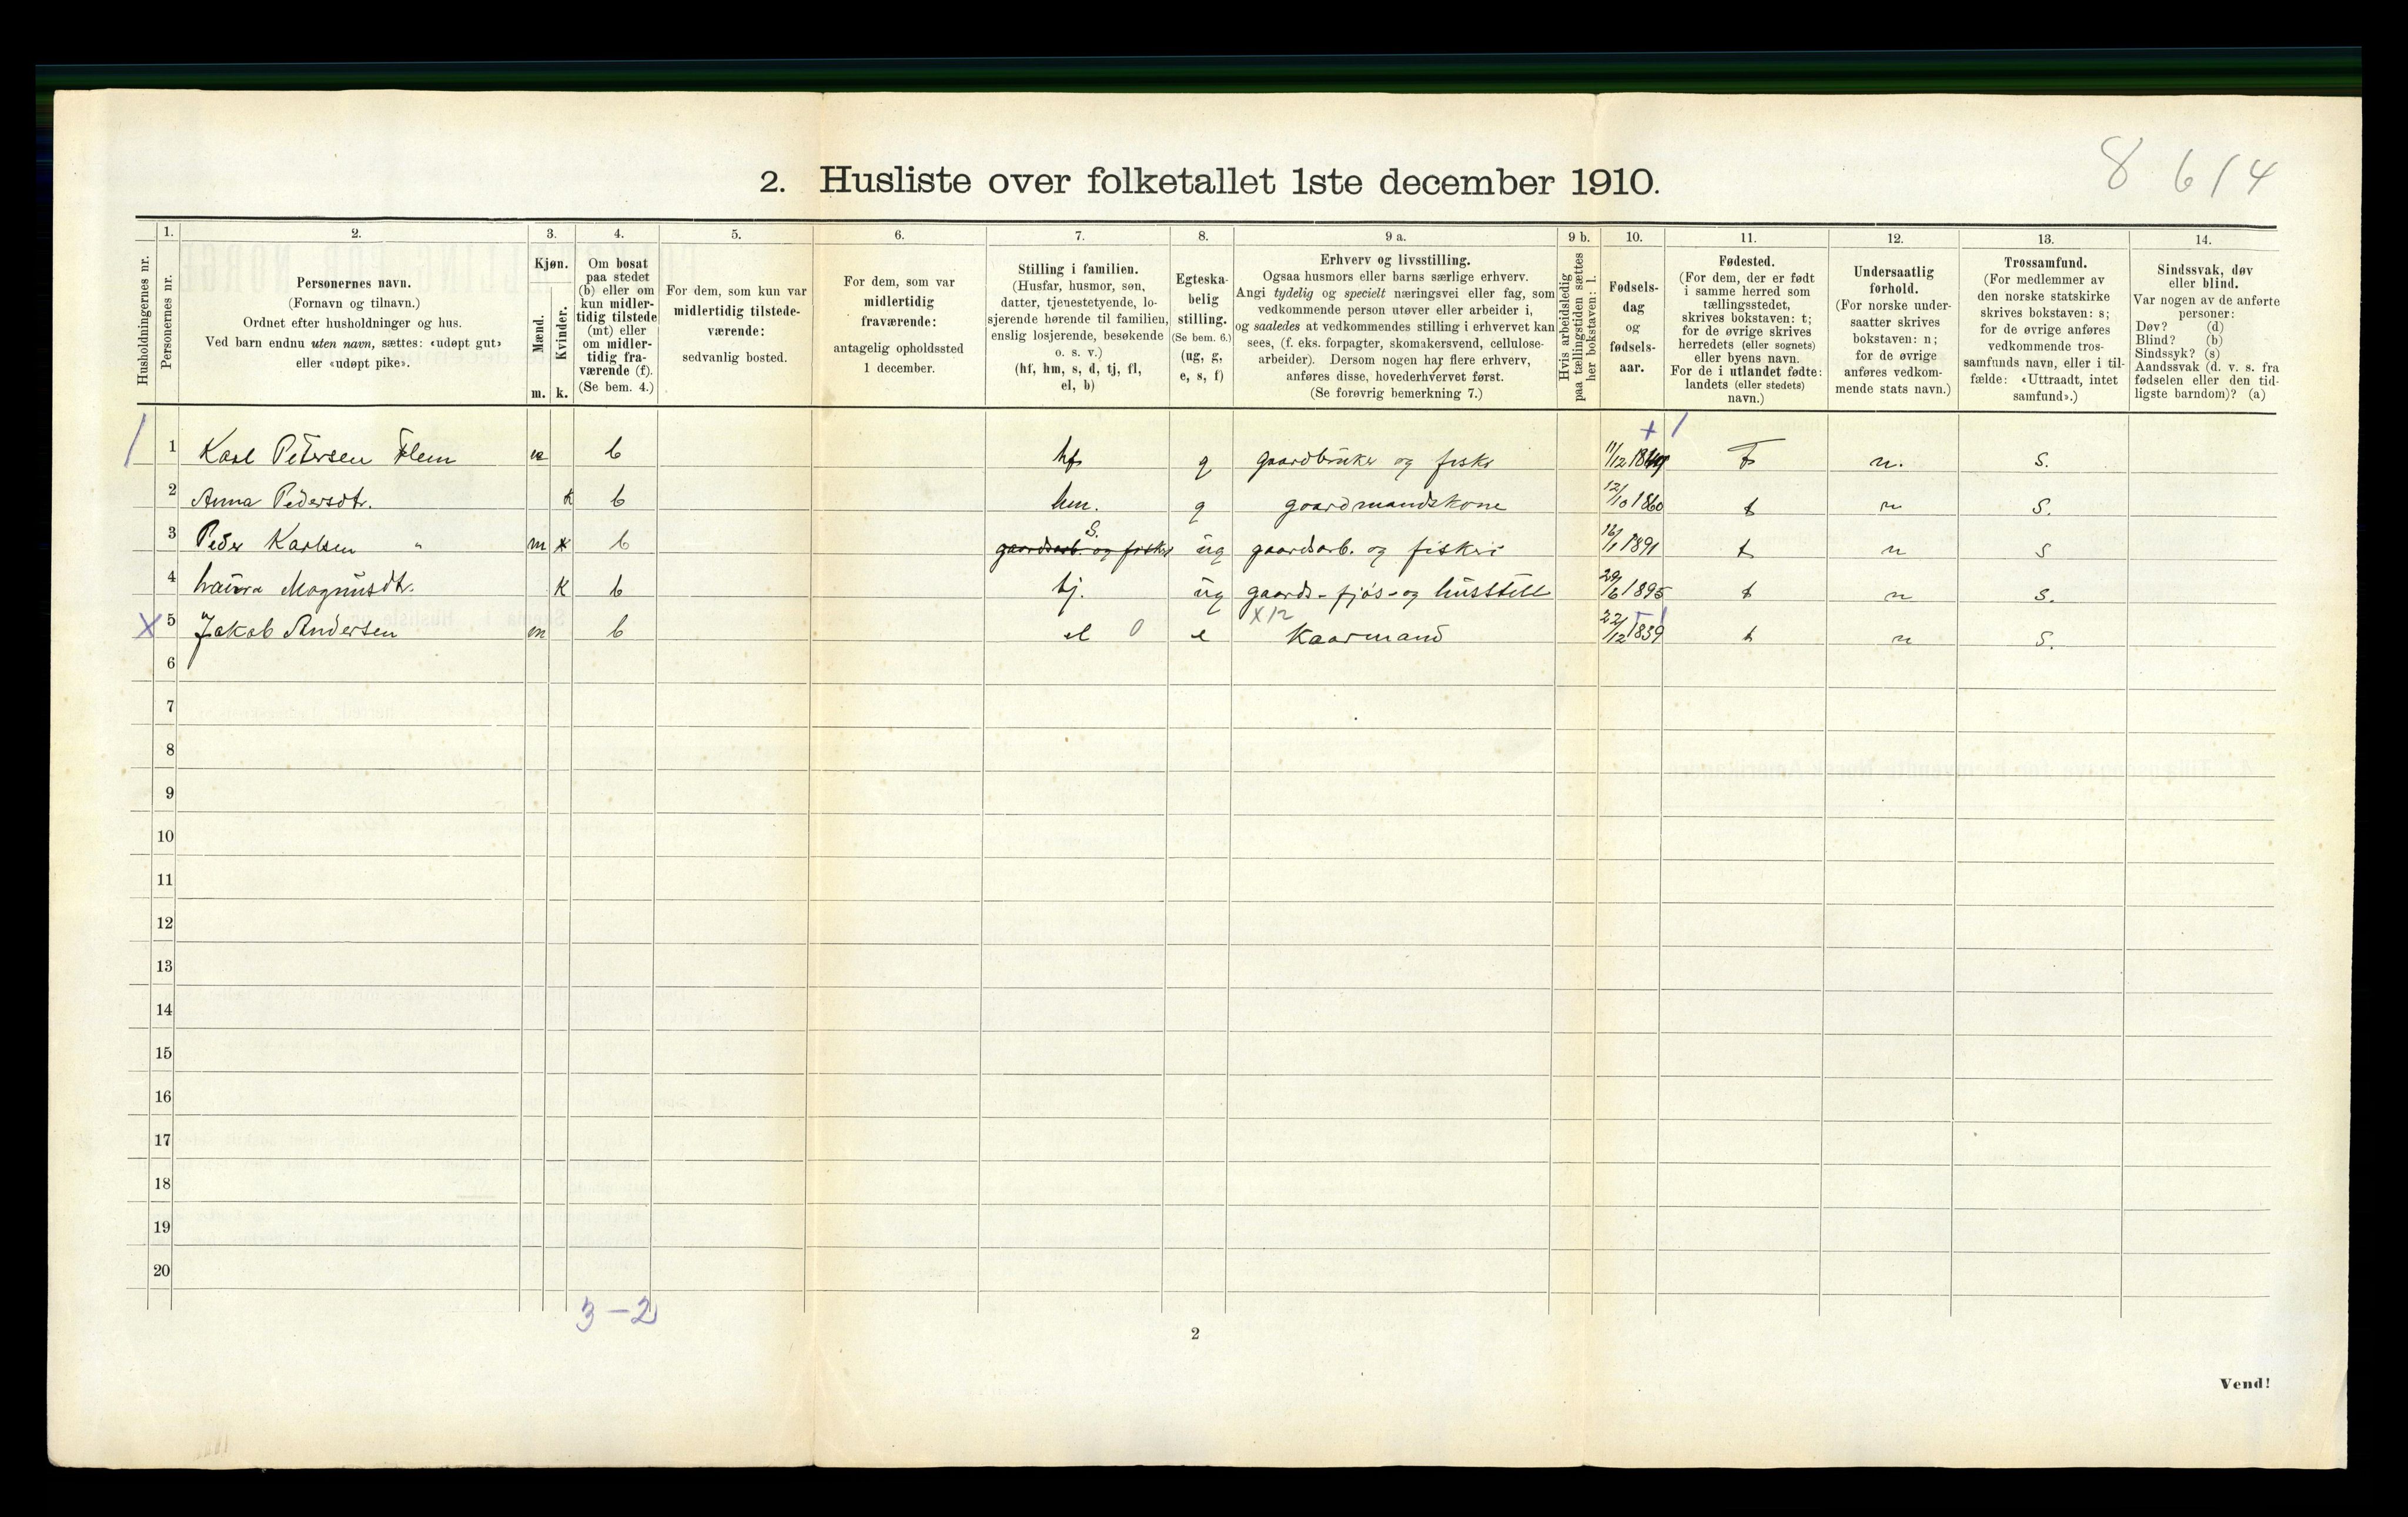 8 614
2. Husliste over folketallet 1ste december 1910.
Husholdningernes nr.
1.
Personernes nr.
2.
Personernes navn.
(Fornavn og tilnavn.)
Ordnet efter husholdninger og hus.
Ved barn endnu uten navn, sættes: «udøpt gut»
eller «udøpt pike».
3.
Kjøn.
Mænd.
Kvinder.
m. k.
4.
Om bosat
paa stedet
(b) eller om
kun midler-
tidig tilstede
(mt) eller
om midler-
tidig fra-
værende (f).
(Se bem. 4.)
5.
For dem, som kun var
midlertidig tilstede-
værende:
sedvanlig bosted.
6.
For dem, som var
midlertidig
fraværende:
antagelig opholdssted
1 december.
7.
Stilling i familien.
(Husfar, husmor, søn,
datter, tjenestetyende, lo-
sjerende hørende til familien,
enslig losjerende, besøkende
o. s. v.)
(hf, hm, s, d, tj, fl,
el, b)
8.
Egteska-
belig
stilling.
(Se bem. 6.)
(ug, g,
e, s, f)
9 a.
Erhverv og livsstilling.
Ogsaa husmors eller barns særlige erhverv.
Angi tydelig og specielt næringsvei eller fag, som
vedkommende person utøver eller arbeider i,
og saaledes at vedkommendes stilling i erhvervet kan
sees, (f. eks. forpagter, skomakersvend, cellulose-
arbeider). Dersom nogen har flere erhverv,
anføres disse, hovederhvervet først.
(Se forøvrig bemerkning 7.)
9 b.
Hvis arbeidsledig
paa tællingstiden sættes
her bokstaven: l.
10.
Fødsels-
dag
og
fødsels-
aar.
11.
Fødested.
(For dem, der er født
i samme herred som
tællingsstedet,
skrives bokstaven: t;
for de øvrige skrives
herredets (eller sognets)
eller byens navn.
For de i utlandet fødte:
landets (eller stedets)
navn.)
12.
Undersaatlig
forhold.
(For norske under-
saatter skrives
bokstaven: n;
for de øvrige
anføres vedkom-
mende stats navn.)
13.
Trossamfund.
(For medlemmer av
den norske statskirke
skrives bokstaven: s;
for de øvrige anføres
vedkommende tros-
samfunds navn, eller i til-
fælde: «Uttraadt, intet
samfund».)
14.
Sindssvak, døv
eller blind.
Var nogen av de anførte
personer:
Døv? (d)
Blind? (b)
Sindssyk? (s)
Aandssvak (d. v. s. fra
fødselen eller den tid-
ligste barndom)? (a)
1 Karl Petersen Flem m b hf g gaardbruker og fisker 11/12 t n. s.
2 Anna Pedersdtr. k b hm. g gaardmandskone 12/10 1860 t n s.
3 Peder Karlsen " m b s. gaardsarb. og fisker ug gaardsarb. og fiskeri 16/1 1891 t n s
4 Laura Magnusdtr. k b tj. ug gaards- fjøs- og husstell 29/6 1895 t n s.
X 5 Jakob Andersen m b el 0 e X 12 Kaarmand 22/12 1839 t n s.
6
7
8
9
10
11
12
13
14
15
16
17
18
19
20
3 - 2
2
Vend!